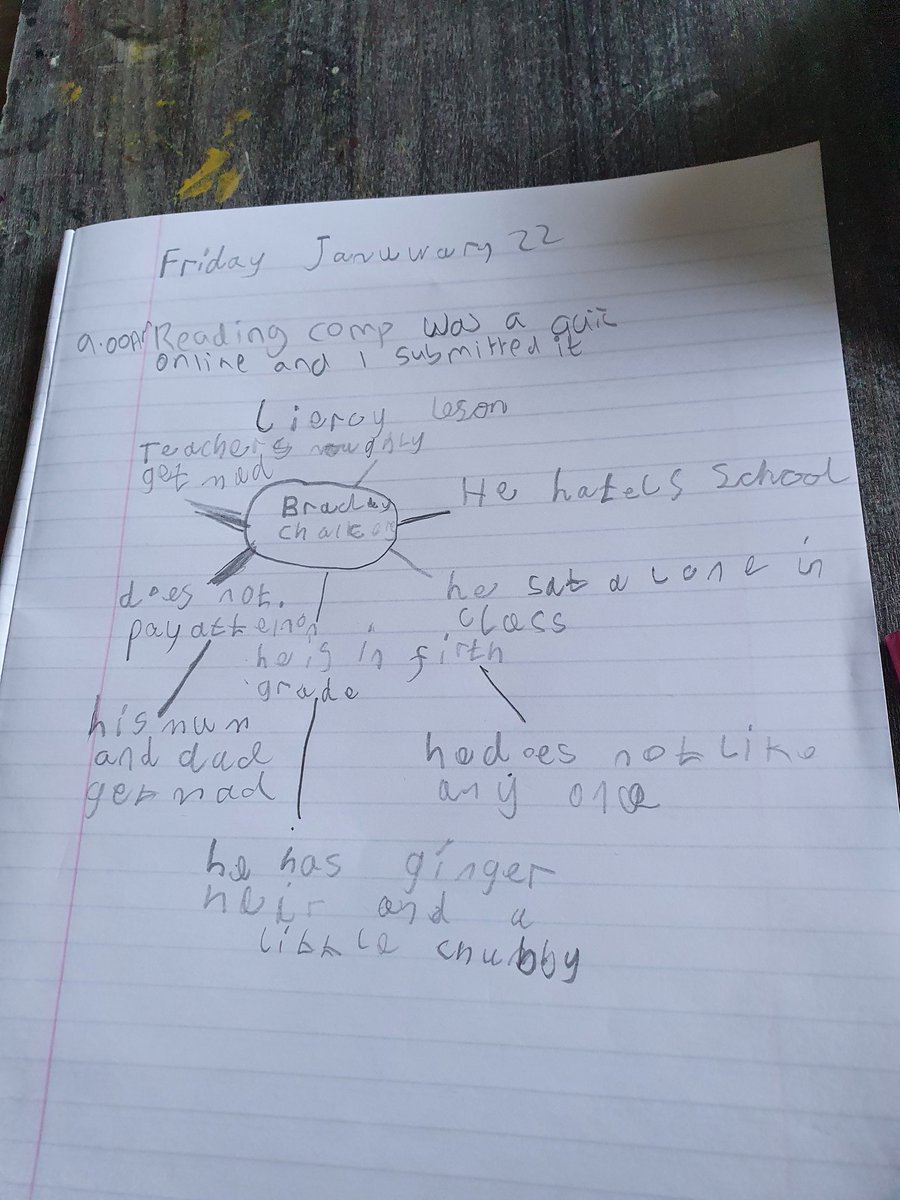 Friday Januwary 22
9.00AM Reading comp was a quiz
online and I submitted it
Lieracy leson
Teachers roughly
get mad
Bradley
chalkers
He hatels School
does not.
pay atteinon
he sat alone in
class
he is in firth
grade
his mum
and dad
get mad
he does not like
any one
he has ginger
heir and a
little chubby